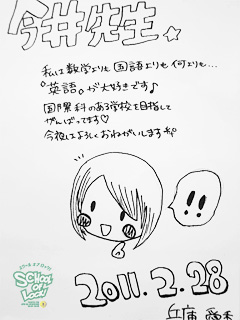 今井先生☆
私は数学よりも国語よりも何よりも…
"英語"が大好きです♪
国際科のある学校を目指して
がんばってます♡
今夜はよろしくおねがいします
!!
SCHOOL
OF
LOCK!
2011.2.28
兵庫